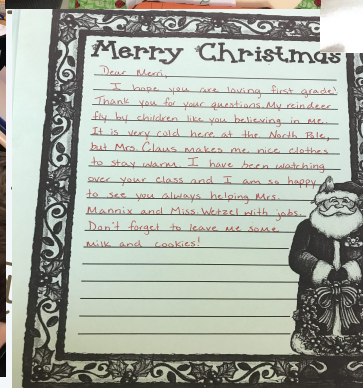 Merry Christmas
Dear Merri,
I hope you are loving first grade!
Thank you for your questions. My reindeer
fly by children like you believing in me.
It is very cold here at the North Pole,
but Mrs. Claus makes me nice clothes
to stay warm. I have been watching
over your class and I am so happy
to see you always helping Mrs.
Mannix and Miss. Wetzel with jobs.
Don't forget to leave me some
milk and cookies!